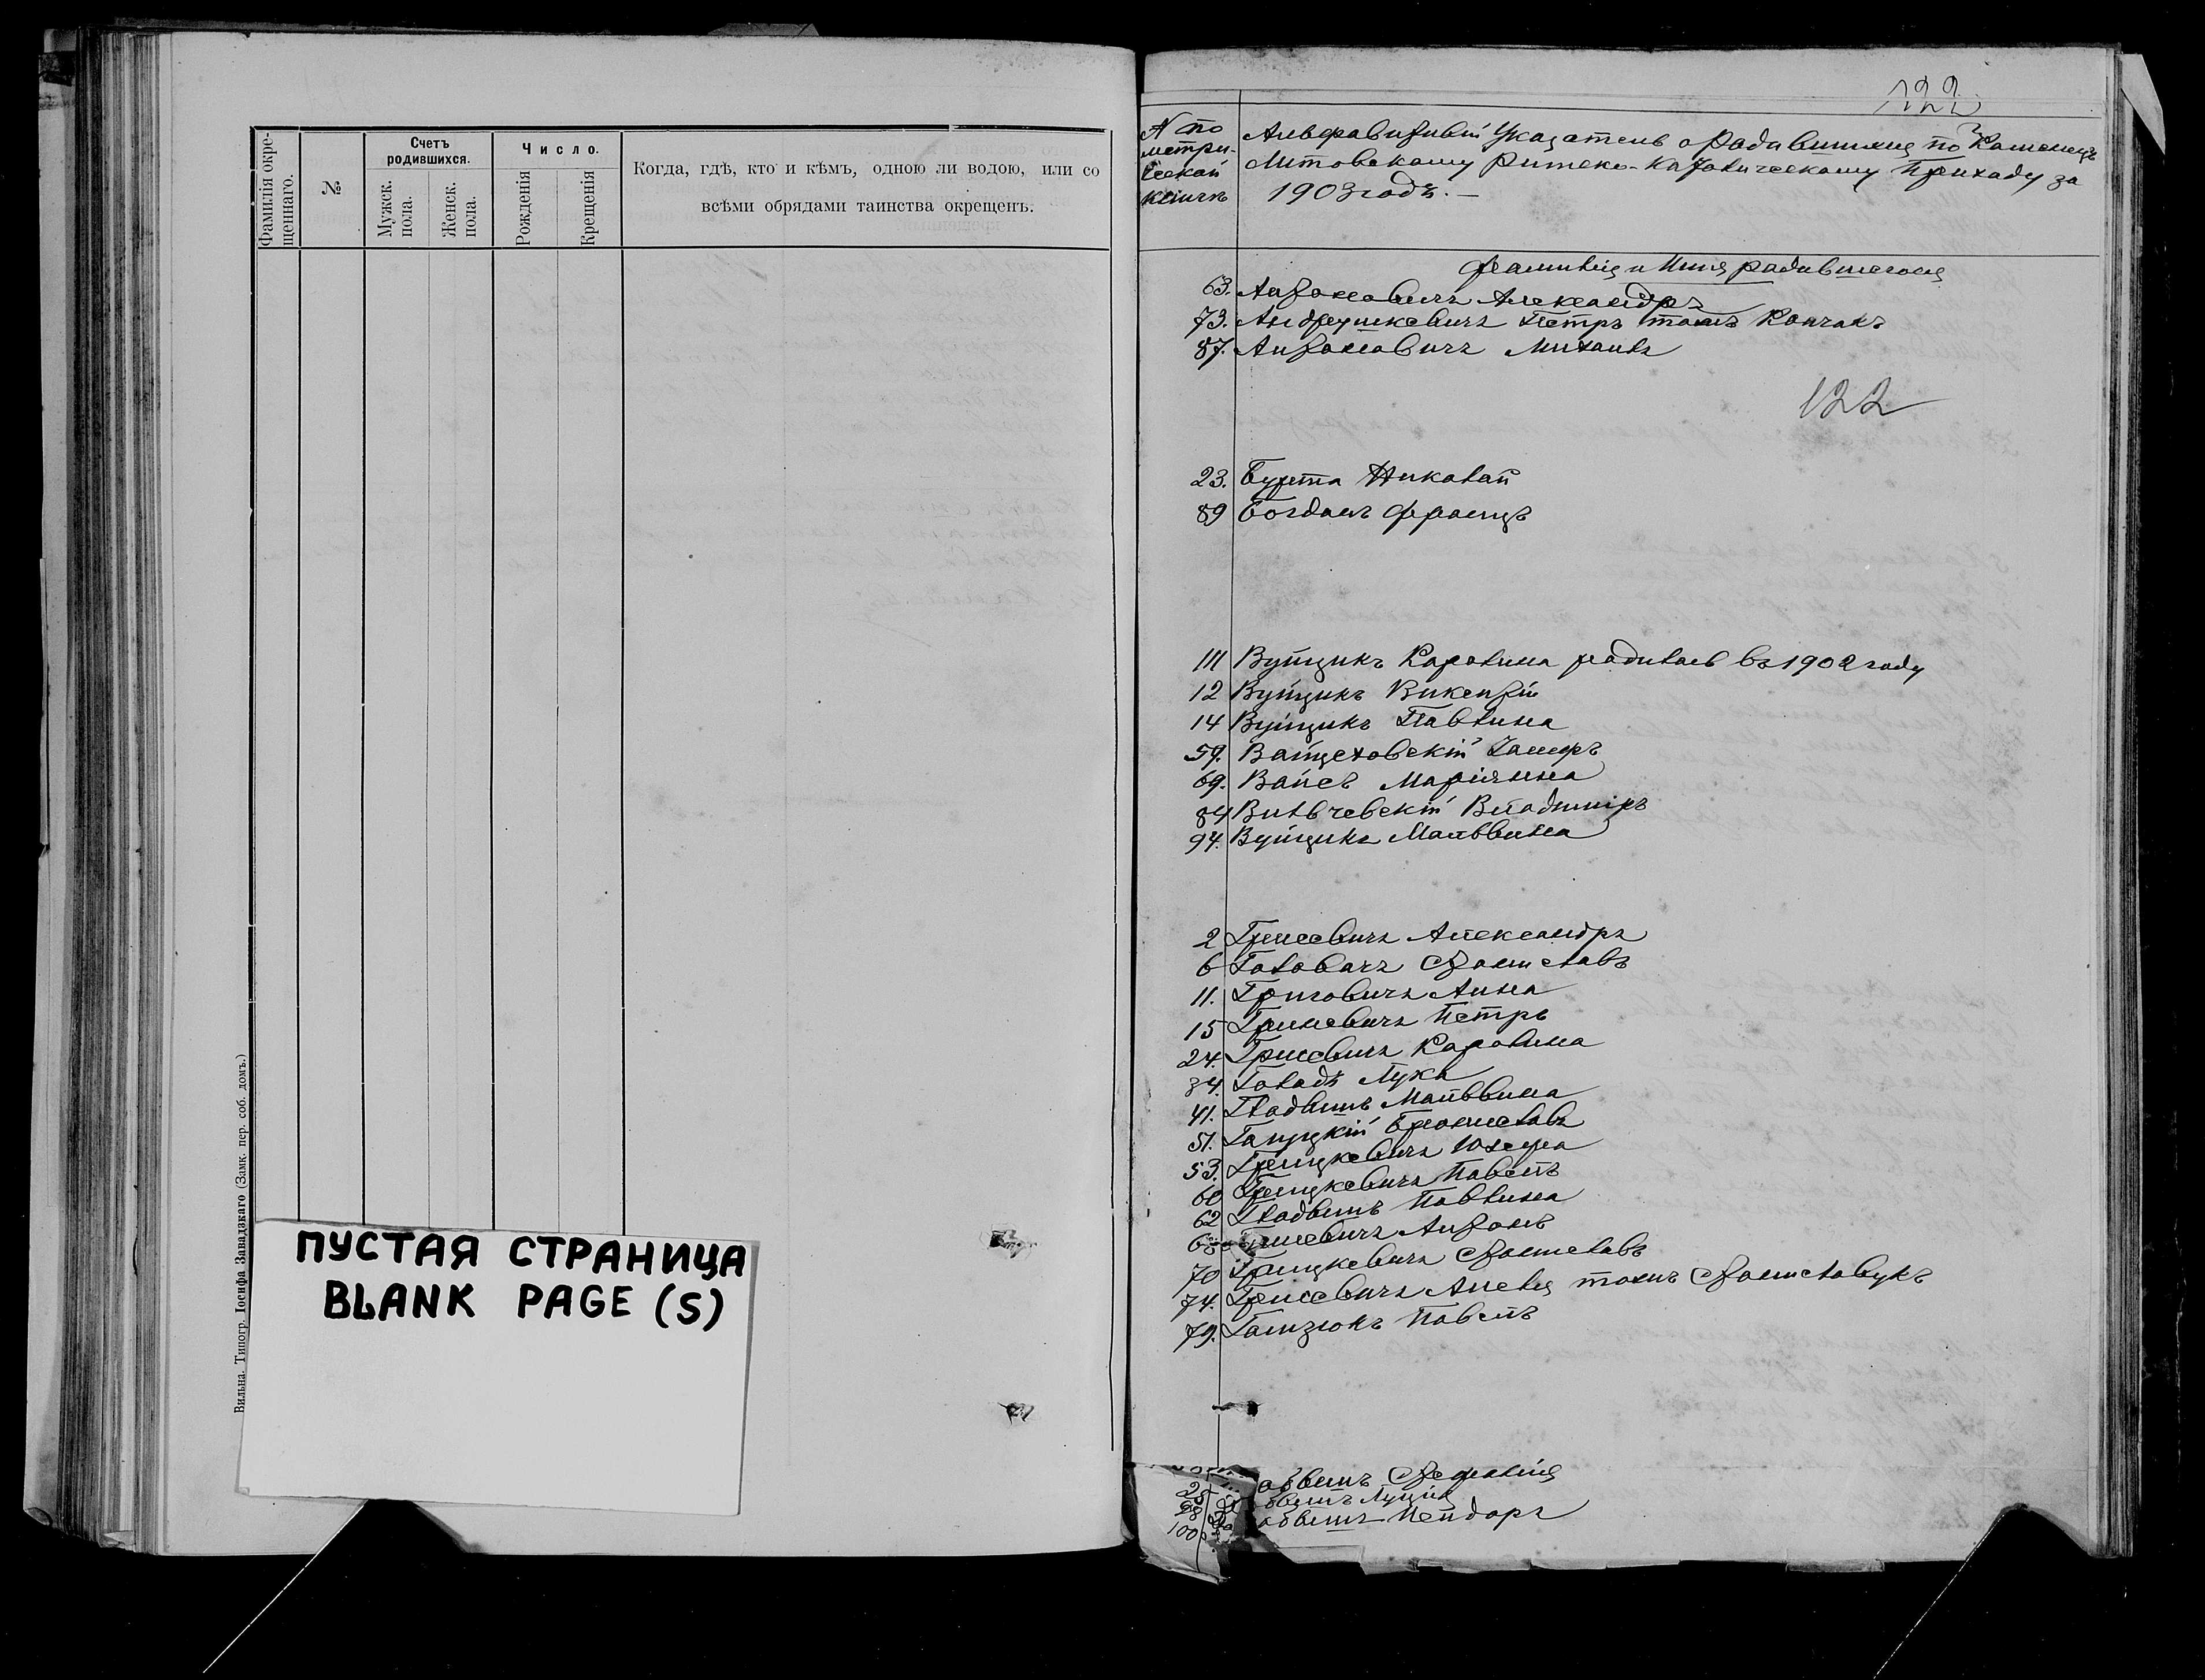 Фамилія окре-
щеннаго.
№
Счетъ
родившихся.
Мужеск.
пола.
Женск.
пола.
Число.
Рожденія
Крещенія
Когда, гдѣ, кто и кѣмъ, одною ли водою, или со
всѣми обрядами таинства окрещенъ.
Вильна. Типогр. Іосифа Завадзкаго (Замк. пер. соб. домъ.)
ПУСТАЯ СТРАНИЦА
BLANK PAGE (S)
122
N по
метри-
ческой
книгѣ
Альфавитный Указатель о Родившихся по Каменецъ
Литовскому Римско-Католическому Приходу за
1903 годъ. —
Фамилія и Имя родившагося
63. Антоновичъ Александръ
73. Андрушкевичъ Петръ тожъ Кончакъ
87. Антоновичъ Михаилъ
122
23. Бурта Николай
89 Богданъ Францъ
111 Вуйцикъ Каролина родилась въ 1902 году
12 Вуйцикъ Викентій
14 Вуйцикъ Павлина
59. Войцеховскій
69. Войсъ Маріянна
84 Вильчевскій Владиміръ
94. Вуйцикъ Мальвина
2 Гриневичъ Александръ
6 Головачъ Станиславъ
11. Григовичъ Анна
15 Гриневичъ Петръ
24. Гриневичъ Каролина
34. Голадъ Лука
41. Гладышъ Мальвина
51. Галуцкій Брониславъ
53. Грицкевичъ Юзефа
60 Грицкевичъ Павелъ
62 Гладышъ Павлина
68 Гриневичъ Антонъ
70 Грицкевичъ Станиславъ
74. Гриневичъ Анеля тожъ Станиславукъ
79. Гамзюкъ Павелъ
25 Стефанія
98 Луція
100 Исидоръ